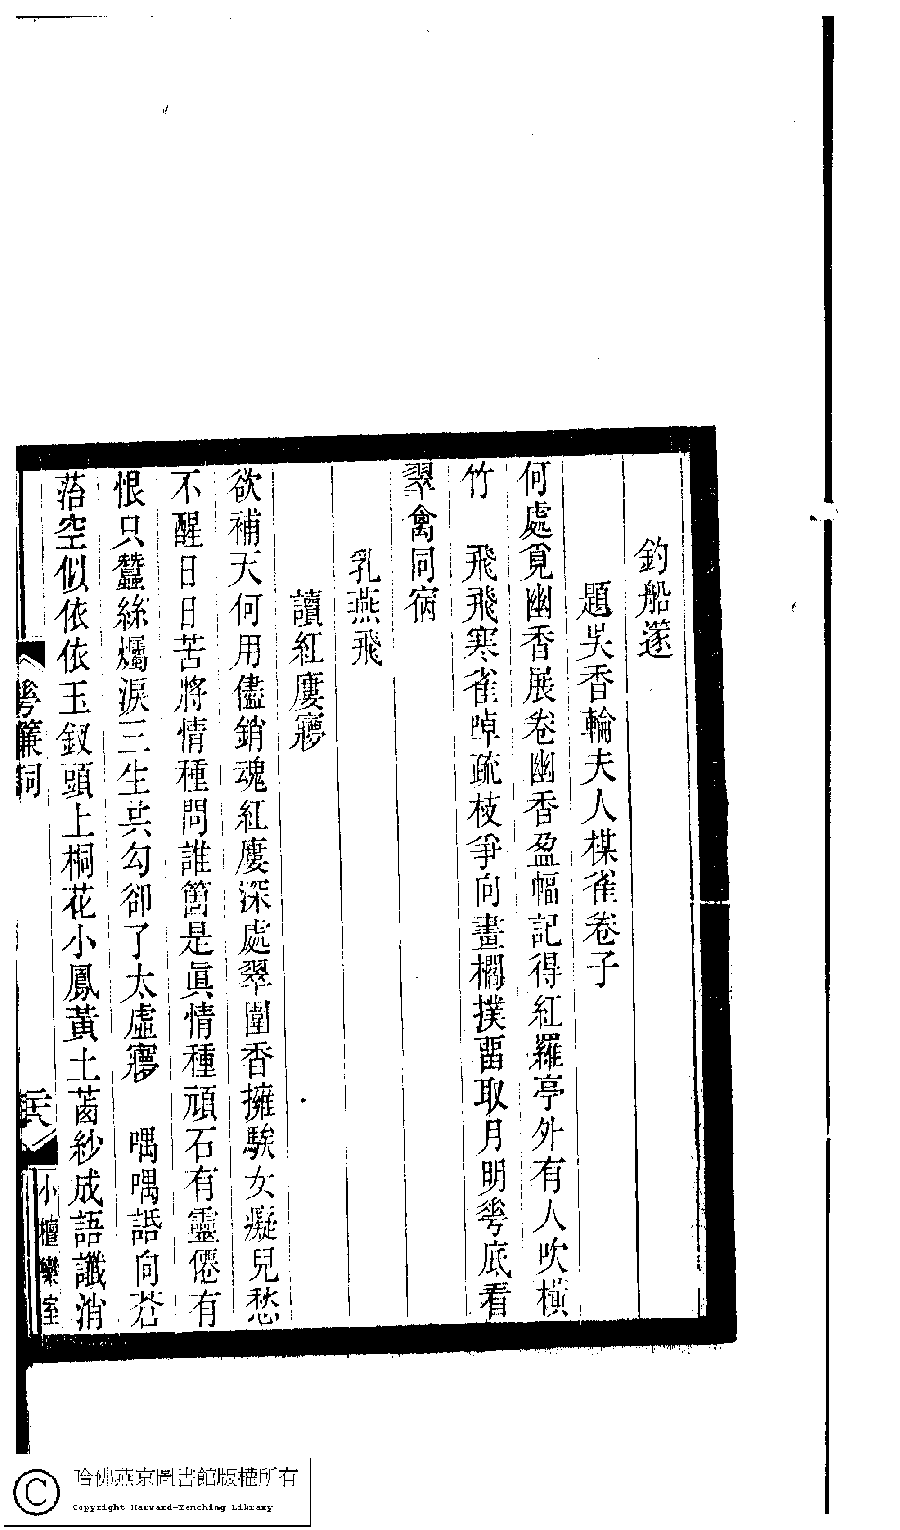 釣船篴
題吳香輪夫人楳雀卷子
何處覓幽香展卷幽香盈幅記得紅羅亭外有人吹橫
竹　飛飛寒雀啅疏枝爭向畫欄撲畱取月明荂底看
翠禽同宿
乳燕飛
讀紅廔㝱
欲補天何用儘銷魂紅廔深處翠圍香擁騃女癡兒愁
不醒日日苦將情種問誰箇是眞情種頑石有靈僊有
恨只蠶絲爥淚三生共勾卻了太虛㝱　喁喁話向蒼
苔空似依依玉釵頭上桐花小鳳黃土茜紗成語讖消
荂簾詞
小檀欒室
哈佛燕京圖書館版權所有
Copyright Harvard-Yenching Library